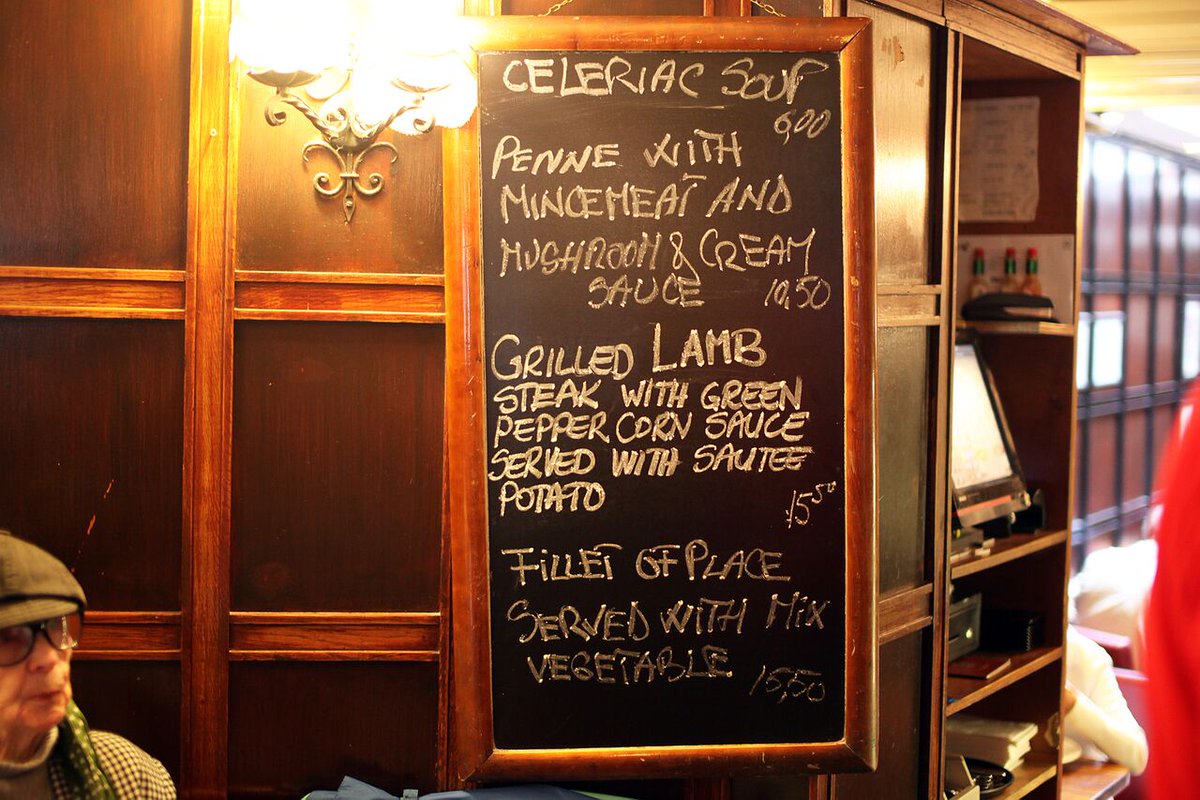 CELERIAC SOUP
6,00
PENNE WITH
MINCEMEAT AND
MUSHROOM & CREAM
SAUCE 10,50
GRILLED LAMB
STEAK WITH GREEN
PEPPER CORN SAUCE
SERVED WITH SAUTEE
POTATO
15,50
FILLET OF PLACE
SERVED WITH MIX
VEGETABLE 15,50